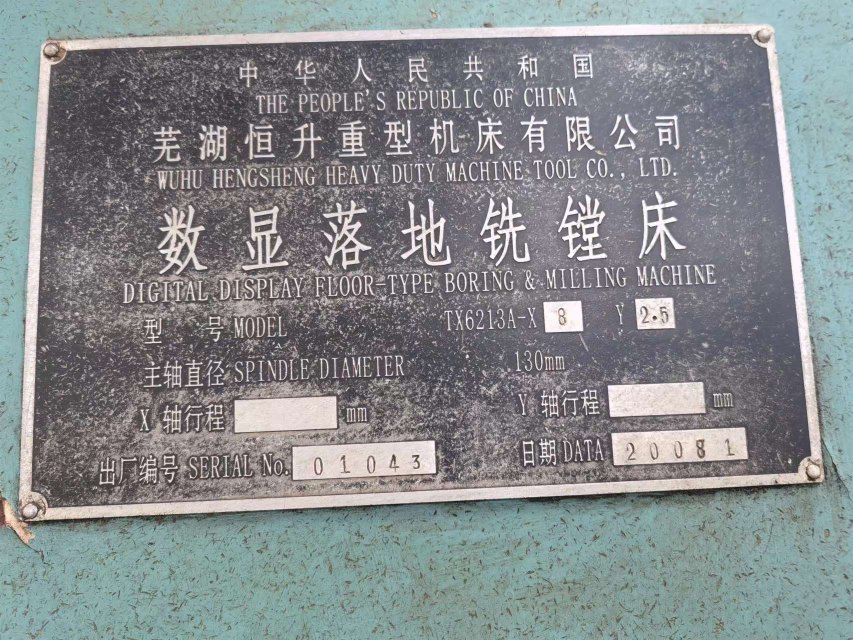 中华人民共和国
THE PEOPLE'S REPUBLIC OF CHINA
芜湖恒升重型机床有限公司
WUHU HENGSHENG HEAVY DUTY MACHINE TOOL CO., LTD.
数显落地铣镗床
DIGITAL DISPLAY FLOOR-TYPE BORING & MILLING MACHINE
型 号 MODEL TX6213A-X 8 Y 2.5
主轴直径 SPINDLE DIAMETER 130mm
X 轴行程 mm Y 轴行程 mm
出厂编号 SERIAL No. 01043 日期 DATA 20081